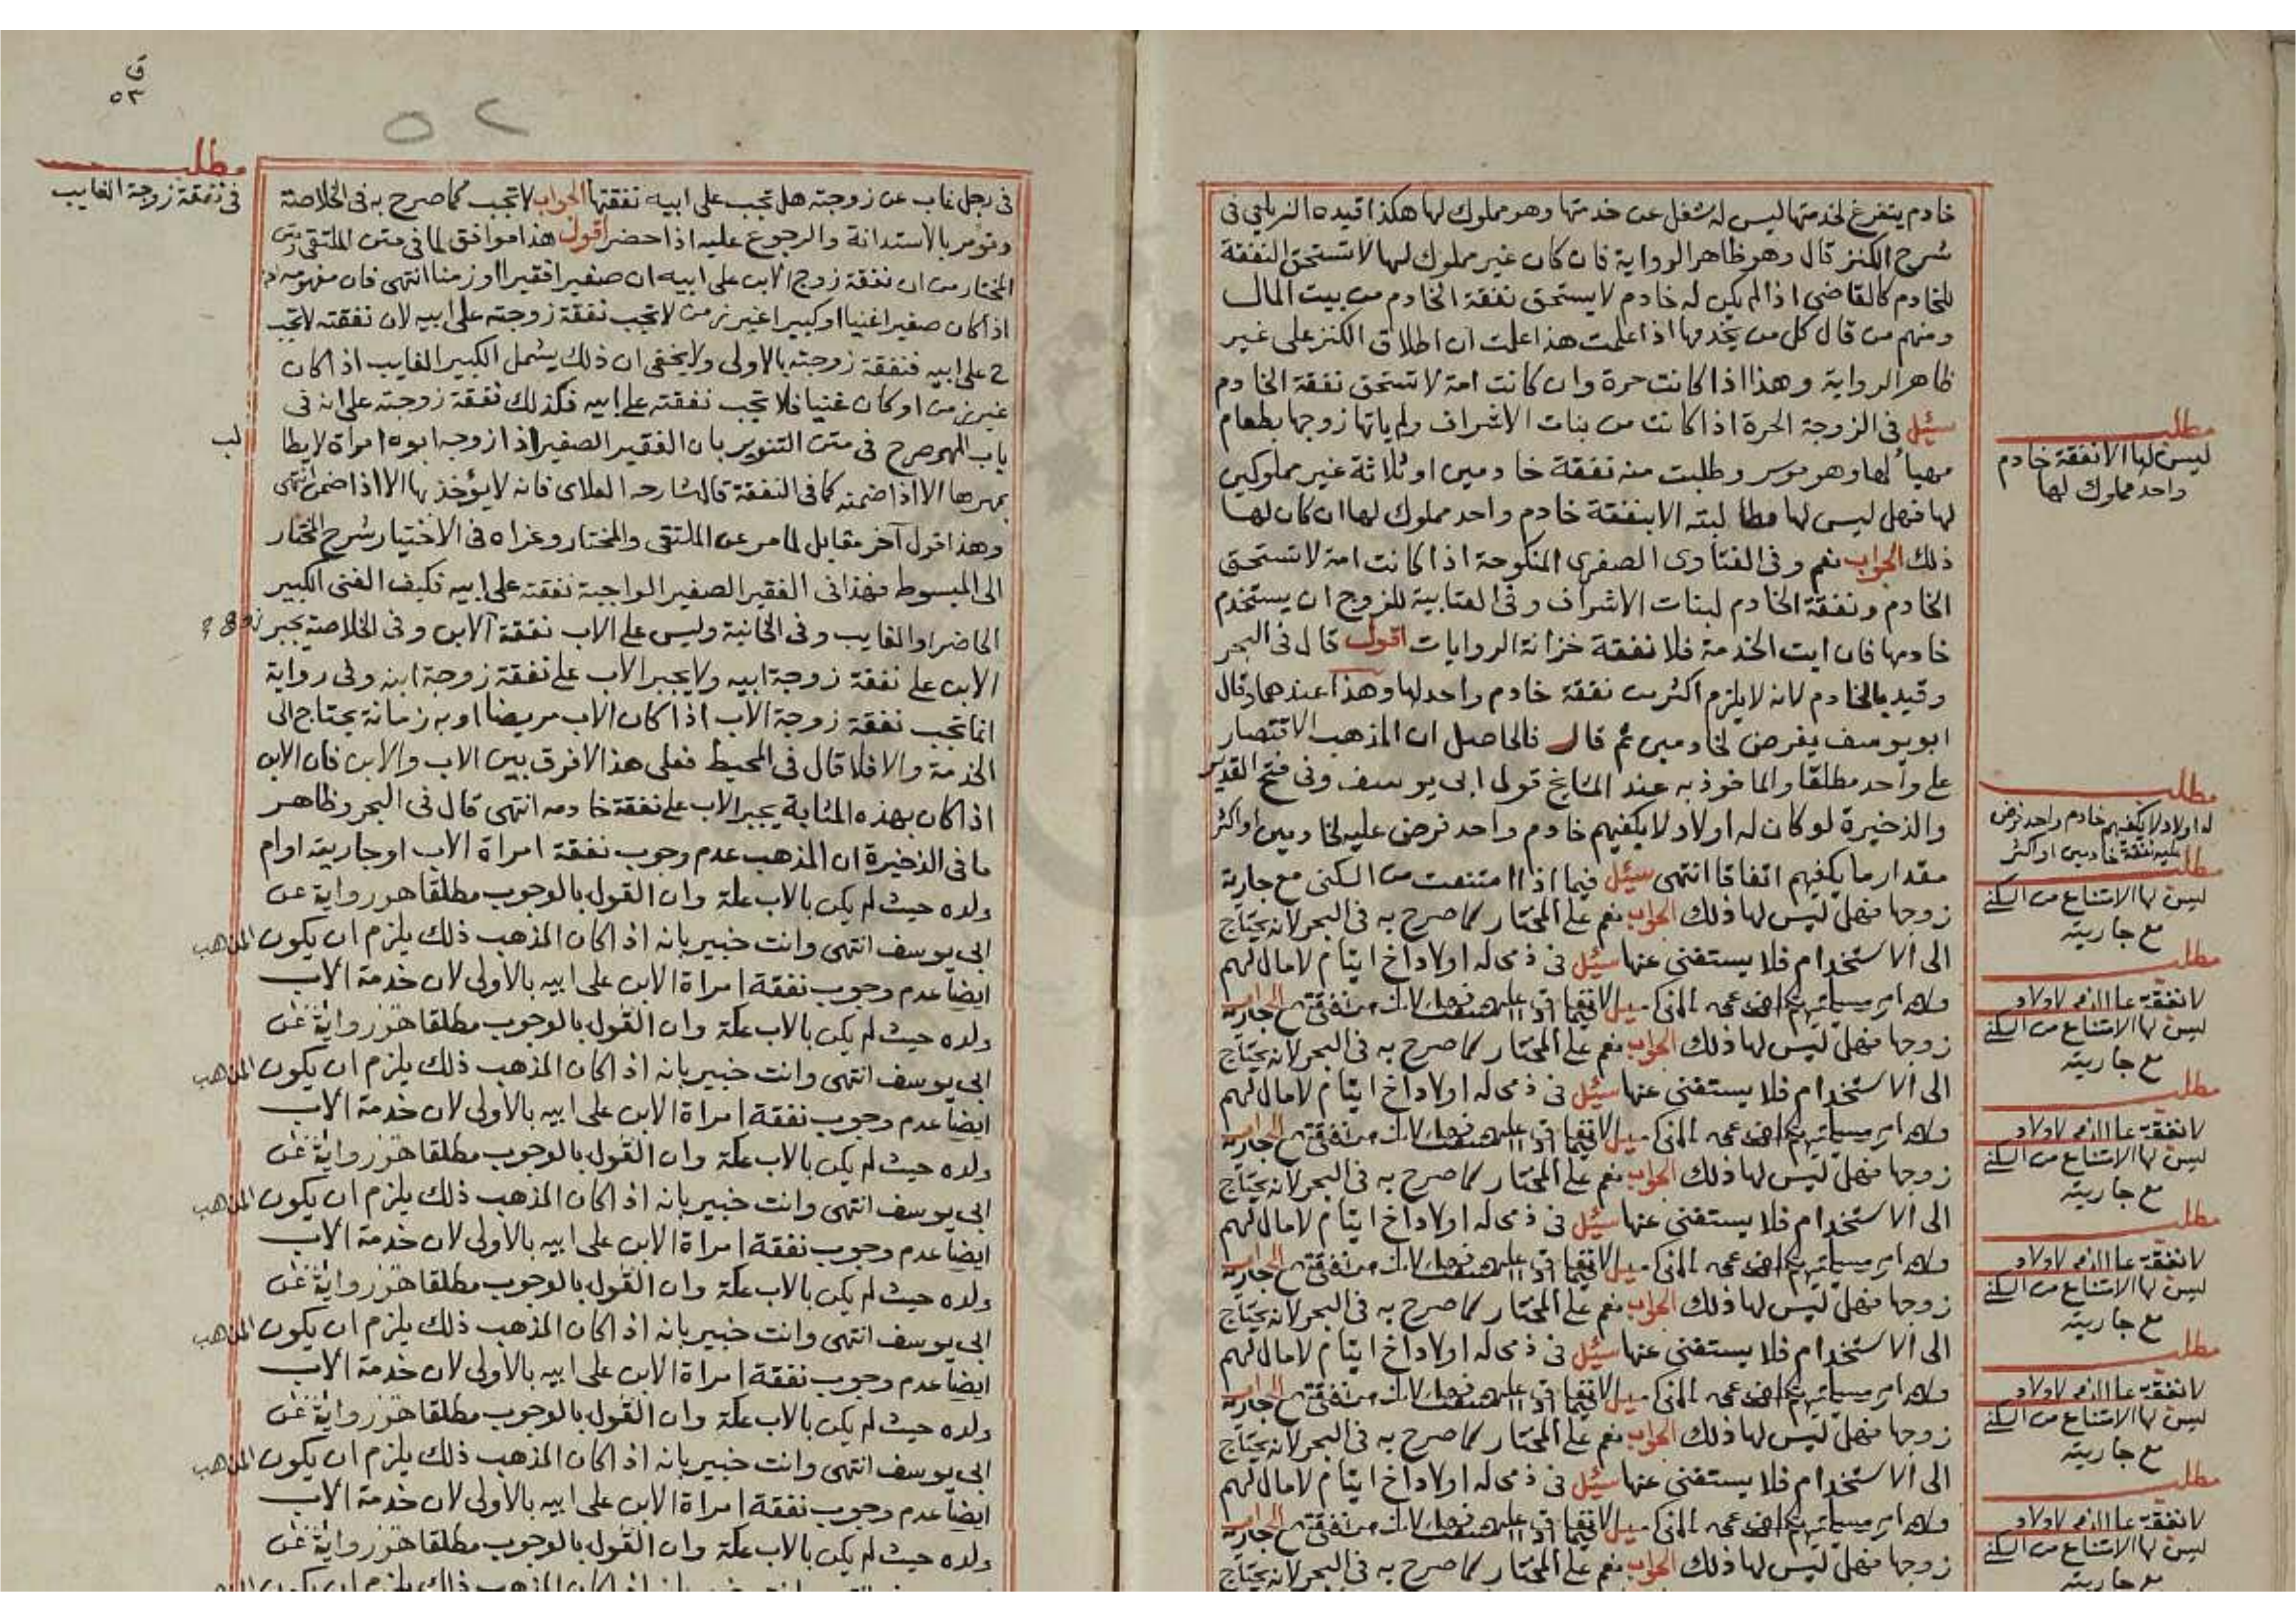 خادم يتفرغ لخدمتها ليس له شغل عن خدمتها وهو مملوك لها هكذا قيده الزيلعي في
شرح الكنز قال وهو ظاهر الرواية فان كان غير مملوك لها لا تستحق النفقة
للخادم كالقاضي اذا لم يكن له خادم لا يستحق نفقة الخادم من بيت المال
ومنهم من قال كل من يخدمها اذا علمت هذا علمت ان اطلاق الكنز على غير
ظاهر الرواية وهذا اذا كانت حرة وان كانت امة لا تستحق نفقة الخادم
سئل في الزوجة الحرة اذا كانت من بنات الاشراف ولم ياتها زوجها بطعام
مهيأ لها وهو موسر وطلبت منه نفقة خادمين او ثلاثة غير مملوكين
لها فهل ليس لها مطالبته الا بنفقة خادم واحد مملوك لها ان كان لها
ذلك الجواب نعم وفي الفتاوى الصغرى المنكوحة اذا كانت امة لا تستحق
الخادم ونفقة الخادم لبنات الاشراف وفي العتابية للزوج ان يستخدم
خادمها فان ابت الخدمة فلا نفقة خزانة الروايات اقول قال في البحر
وقيد بالخادم لانه لا يلزم اكثر من نفقة خادم واحد لها وهذا عندهما وقال
ابو يوسف يفرض لخادمين ثم قال فالحاصل ان المذهب الاقتصار
على واحد مطلقا والماخوذ به عند المشايخ قول ابي يوسف وفي فتح القدير
والذخيرة لو كان له اولاد لا يكفيهم خادم واحد فرض عليه لخادمين او اكثر
مقدار ما يكفيهم اتفاقا انتهى سئل فيما اذا امتنعت من السكنى مع جارية
زوجها فهل ليس لها ذلك الجواب نعم على المختار كما صرح به في البحر لانه يحتاج
الى الاستخدام فلا يستغني عنها سئل في ذمي له اولاد اخ ايتام لا مال لهم
زوجها فهل ليس لها ذلك الجواب نعم على المختار كما صرح به في البحر لانه يحتاج
الى الاستخدام فلا يستغني عنها سئل في ذمي له اولاد اخ ايتام لا مال لهم
زوجها فهل ليس لها ذلك الجواب نعم على المختار كما صرح به في البحر لانه يحتاج
الى الاستخدام فلا يستغني عنها سئل في ذمي له اولاد اخ ايتام لا مال لهم
زوجها فهل ليس لها ذلك الجواب نعم على المختار كما صرح به في البحر لانه يحتاج
الى الاستخدام فلا يستغني عنها سئل في ذمي له اولاد اخ ايتام لا مال لهم
زوجها فهل ليس لها ذلك الجواب نعم على المختار كما صرح به في البحر لانه يحتاج
الى الاستخدام فلا يستغني عنها سئل في ذمي له اولاد اخ ايتام لا مال لهم
زوجها فهل ليس لها ذلك الجواب نعم على المختار كما صرح به في البحر لانه يحتاج
مطلب
ليس لها الا نفقة خادم
واحد مملوك لها
مطلب
له اولاد لا يكفيهم خادم واحد فرض
عليه نفقة خادمين او اكثر
مطلب
ليس لها الامتناع من السكنى
مع جاريته
مطلب
لا نفقة
ليس لها الامتناع من السكنى
مع جاريته
مطلب
لا نفقة
ليس لها الامتناع من السكنى
مع جاريته
مطلب
لا نفقة
ليس لها الامتناع من السكنى
مع جاريته
مطلب
لا نفقة
ليس لها الامتناع من السكنى
مع جاريته
مطلب
لا نفقة
ليس لها الامتناع من السكنى
مع جاريته
ق
٥٣
٥٢
مطلب
في نفقة زوجة الغايب
في رجل غاب عن زوجته هل تجب على ابيه نفقتها الجواب لا تجب كما صرح به في الخلاصة
وتؤمر بالاستدانة والرجوع عليه اذا حضر اقول هذا موافق لما في متن الملتقى ومتن
المختار من ان نفقة زوج الابن على ابيه ان صغيرا فقيرا او زمنا انتهى فان مفهومه انه
اذا كان صغيرا غنيا او كبيرا غير زمن لا تجب نفقة زوجته على ابيه لان نفقته لا تجب
ح على ابيه فنفقة زوجته بالاولى ولا يخفى ان ذلك يشمل الكبير الغايب اذا كان
غير زمن او كان غنيا فلا تجب نفقته على ابيه فكذلك نفقة زوجته على انه في
باب المهر صرح في متن التنوير بان الفقير الصغير اذا زوجه ابوه امراة لا يطالب
بمهرها الا اذا ضمنه كما في النفقة قال شارحه العلاي فانه لا يؤخذ بها الا اذا ضمن انتهى
وهذا قول آخر مقابل لما مر عن الملتقى والمختار وعزاه في الاختيار شرح المختار
الى المبسوط فهذا في الفقير الصغير الواجبة نفقته على ابيه فكيف الغني الكبير
الحاضر او الغايب وفي الخانية وليس على الاب نفقة الابن وفي الخلاصة يجبر
الابن على نفقة زوجة ابيه ولا يجبر الاب على نفقة زوجة ابنه وفي رواية
انما تجب نفقة زوجة الاب اذا كان الاب مريضا او به زمانة يحتاج الى
الخدمة والا فلا قال في المحيط فعلى هذا لا فرق بين الاب والابن فان الابن
اذا كان بهذه المثابة يجبر الاب على نفقة خادمه انتهى قال في البحر وظاهر
ما في الذخيرة ان المذهب عدم وجوب نفقة امراة الاب او جاريته او ام
ولده حيث لم يكن بالاب علة وان القول بالوجوب مطلقا هو رواية عن
ابي يوسف انتهى وانت خبير بانه اذا كان المذهب ذلك يلزم ان يكون المذهب
ايضا عدم وجوب نفقة امراة الابن على ابيه بالاولى لان خدمة الاب
ولده حيث لم يكن بالاب علة وان القول بالوجوب مطلقا هو رواية عن
ابي يوسف انتهى وانت خبير بانه اذا كان المذهب ذلك يلزم ان يكون المذهب
ايضا عدم وجوب نفقة امراة الابن على ابيه بالاولى لان خدمة الاب
ولده حيث لم يكن بالاب علة وان القول بالوجوب مطلقا هو رواية عن
ابي يوسف انتهى وانت خبير بانه اذا كان المذهب ذلك يلزم ان يكون المذهب
ايضا عدم وجوب نفقة امراة الابن على ابيه بالاولى لان خدمة الاب
ولده حيث لم يكن بالاب علة وان القول بالوجوب مطلقا هو رواية عن
ابي يوسف انتهى وانت خبير بانه اذا كان المذهب ذلك يلزم ان يكون المذهب
ايضا عدم وجوب نفقة امراة الابن على ابيه بالاولى لان خدمة الاب
ولده حيث لم يكن بالاب علة وان القول بالوجوب مطلقا هو رواية عن
ابي يوسف انتهى وانت خبير بانه اذا كان المذهب ذلك يلزم ان يكون المذهب
ايضا عدم وجوب نفقة امراة الابن على ابيه بالاولى لان خدمة الاب
ولده حيث لم يكن بالاب علة وان القول بالوجوب مطلقا هو رواية عن